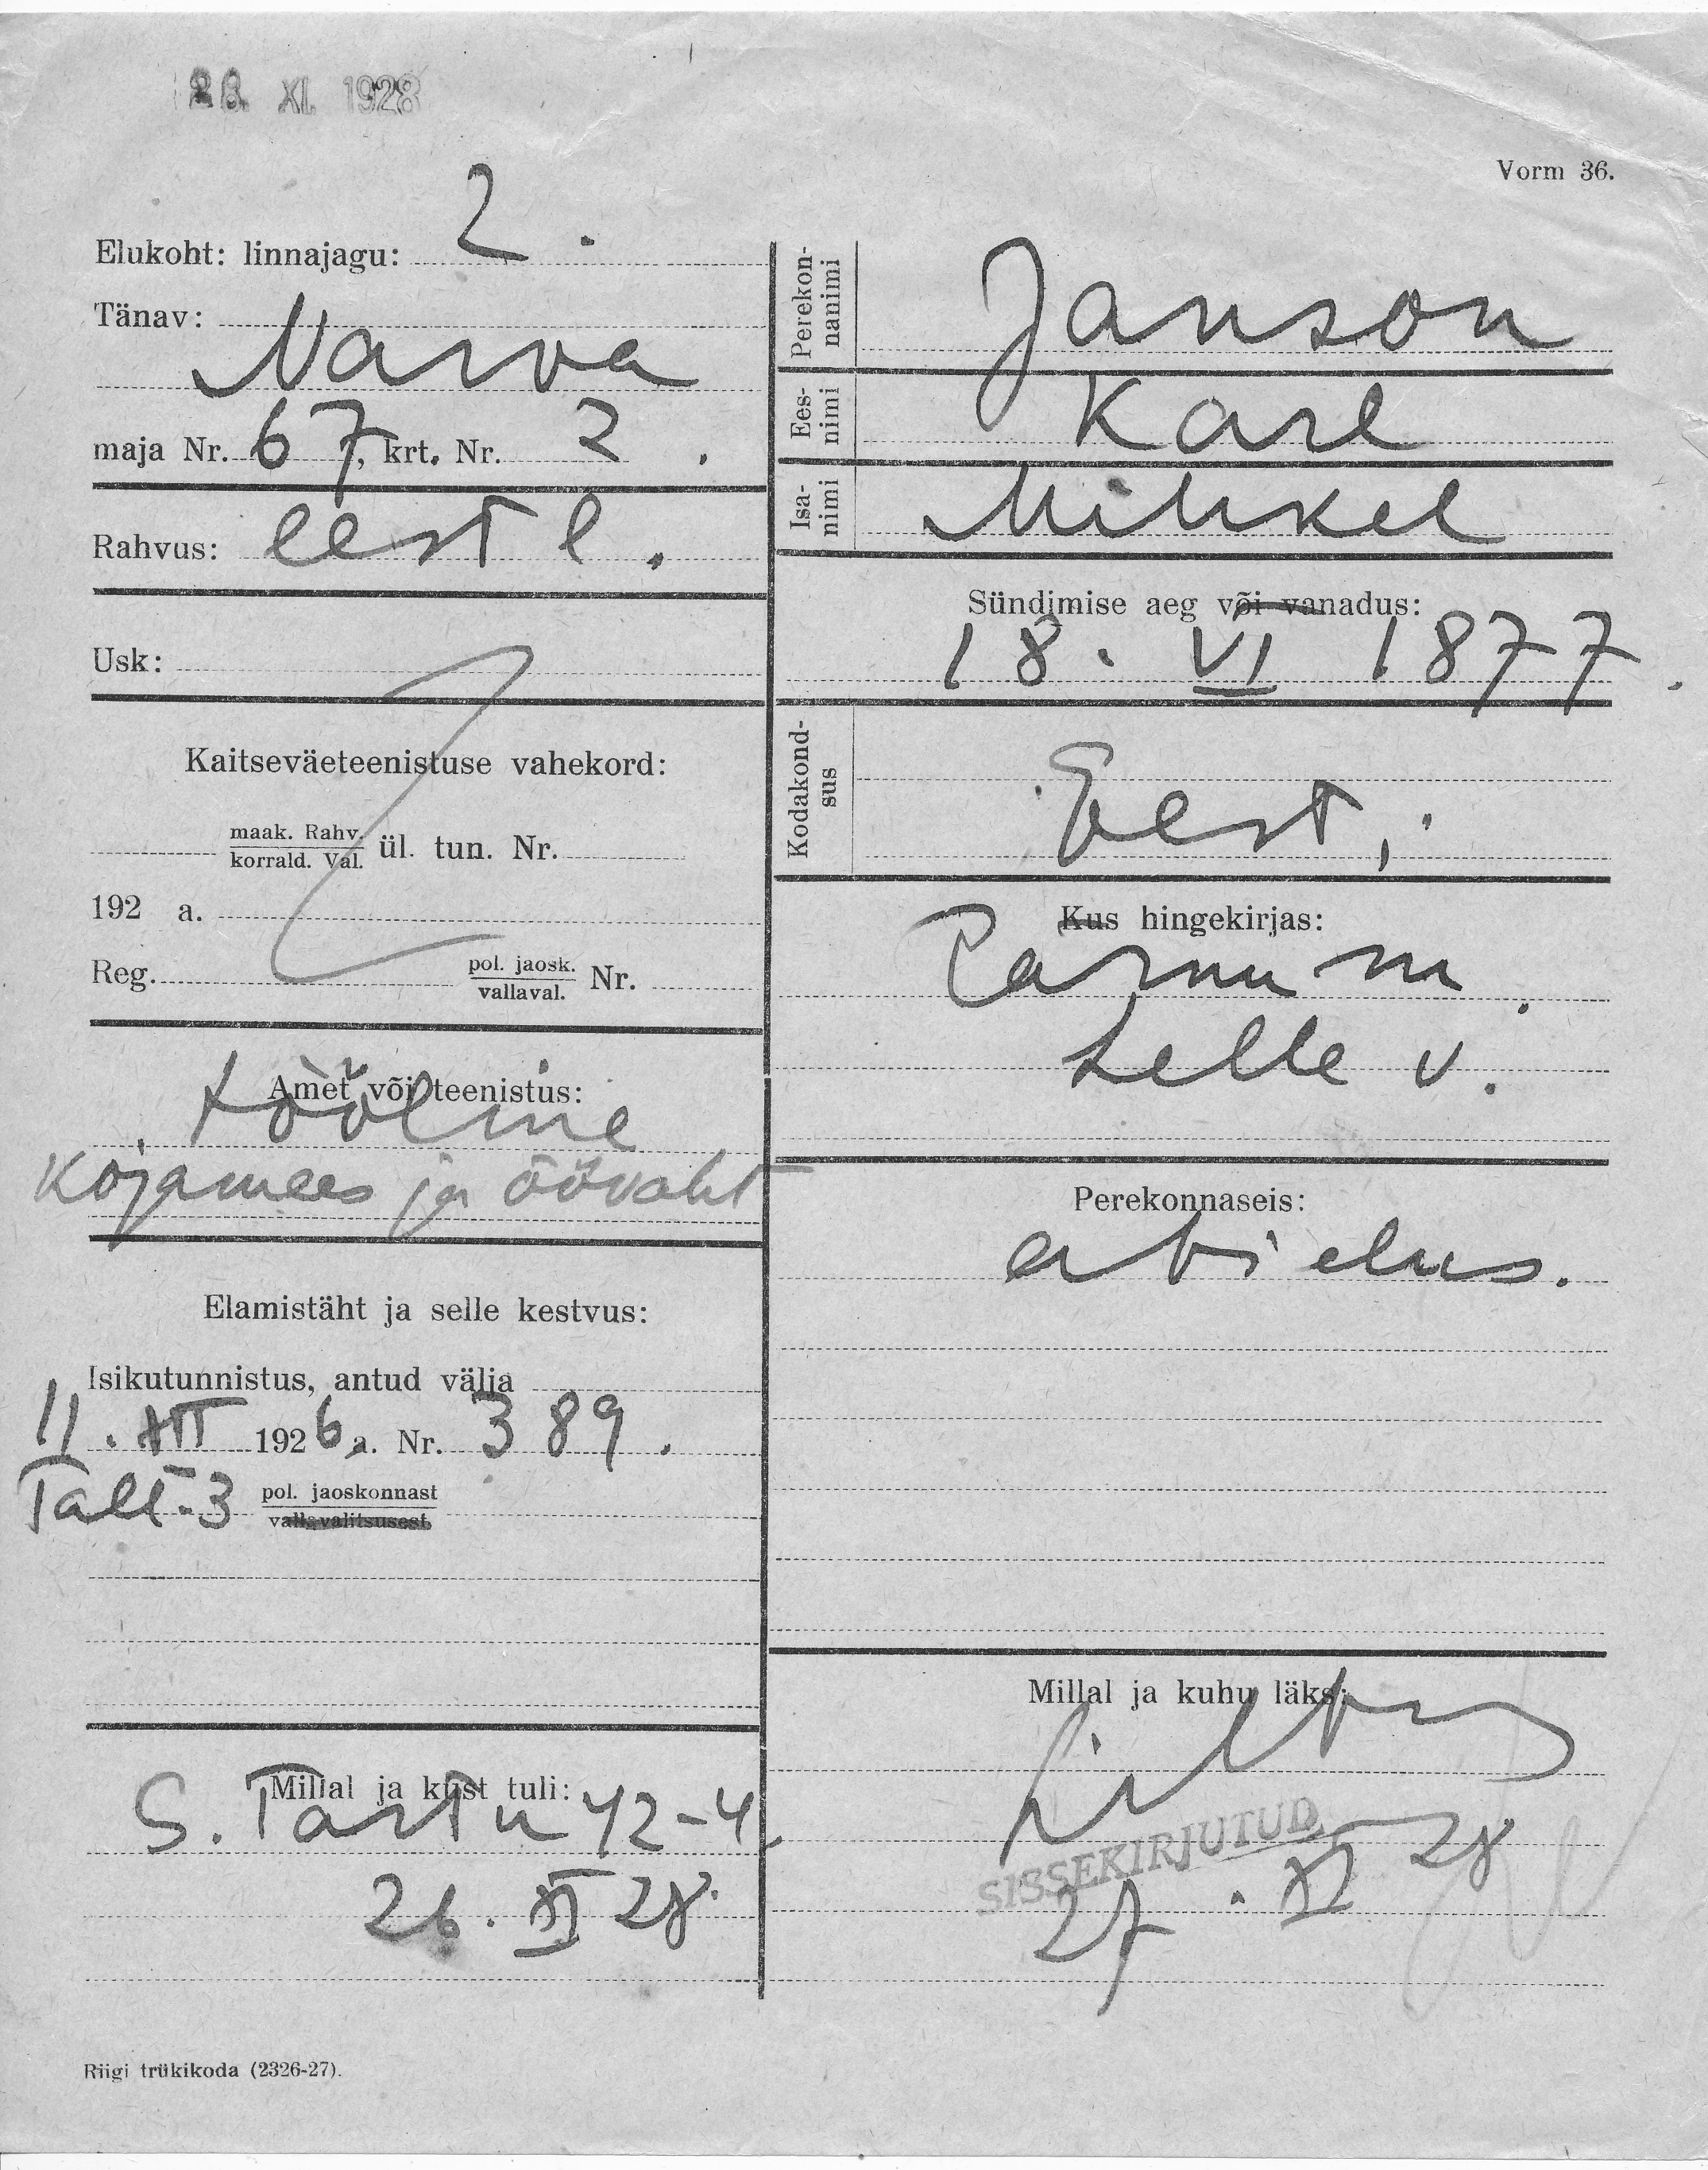 28. XI. 1928
Vorm 36.
Elukoht: linnajagu: 2.
Tänav:
Narva
maja Nr. 67, krt. Nr. 2.
Rahvus: eestl.
Usk:
Kaitseväeteenistuse vahekord:
maak. Rahv.
korrald. Val. ül. tun. Nr.
192 a.
Reg. pol. jaosk.
vallaval. Nr.
Amet või teenistus:
tööline
Kojamees ja öövaht
Elamistäht ja selle kestvus:
Isikutunnistus, antud välja
11. XII 1926 a. Nr. 389.
Tall-3 pol. jaoskonnast
vallavalitsusest
Millal ja kust tuli:
S. Tartu 42-4
26. XI 28.
Perekon-
nanimi
Janson
Ees-
nimi
Karl
Isa-
nimi
Mihkel
Sündimise aeg või vanadus:
18. VI 1877.
Kodakond-
sus
Eesti
Kus hingekirjas:
Pärnu m.
Selle v.
Perekonnaseis:
abielus.
Millal ja kuhu läks:
SISSEKIRJUTUD
27. XI 28
Riigi trükikoda (2326-27).